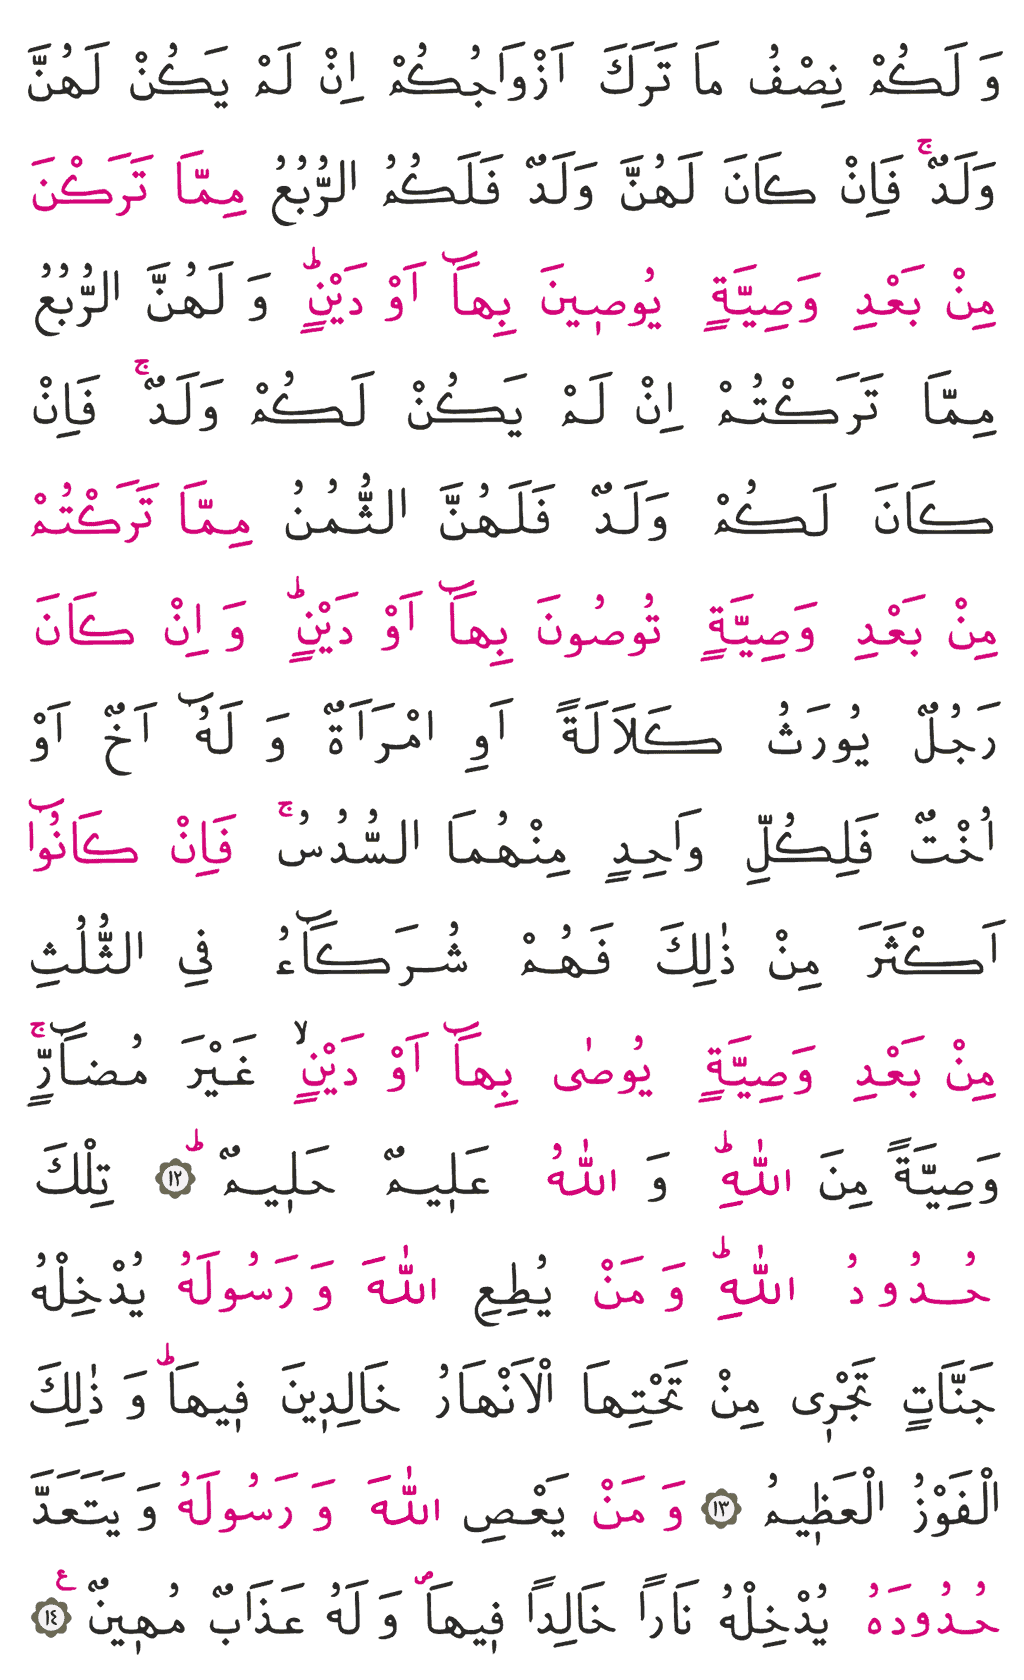 وَ لَكُمْ نِصْفُ مَا تَرَكَ اَزْوَاجُكُمْ اِنْ لَمْ يَكُنْ لَهُنَّ
وَلَدٌۚ فَاِنْ كَانَ لَهُنَّ وَلَدٌ فَلَكُمُ الرُّبُعُ مِمَّا تَرَكْنَ
مِنْ بَعْدِ وَصِيَّةٍ يُوصٖينَ بِهَٓا اَوْ دَيْنٍؕ وَ لَهُنَّ الرُّبُعُ
مِمَّا تَرَكْتُمْ اِنْ لَمْ يَكُنْ لَكُمْ وَلَدٌۚ فَاِنْ
كَانَ لَكُمْ وَلَدٌ فَلَهُنَّ الثُّمُنُ مِمَّا تَرَكْتُمْ
مِنْ بَعْدِ وَصِيَّةٍ تُوصُونَ بِهَٓا اَوْ دَيْنٍؕ وَ اِنْ كَانَ
رَجُلٌ يُورَثُ كَلَالَةً اَوِ امْرَاَةٌ وَ لَهُٓ اَخٌ اَوْ
اُخْتٌ فَلِكُلِّ وَاحِدٍ مِنْهُمَا السُّدُسُۚ فَاِنْ كَانُٓوا
اَكْثَرَ مِنْ ذٰلِكَ فَهُمْ شُرَكَٓاءُ فِي الثُّلُثِ
مِنْ بَعْدِ وَصِيَّةٍ يُوصٰى بِهَٓا اَوْ دَيْنٍۙ غَيْرَ مُضَٓارٍّۚ
وَصِيَّةً مِنَ اللّٰهِؕ وَ اللّٰهُ عَلٖيمٌ حَلٖيمٌؕ ﴿١٢﴾ تِلْكَ
حُدُودُ اللّٰهِؕ وَ مَنْ يُطِعِ اللّٰهَ وَ رَسُولَهُ يُدْخِلْهُ
جَنَّاتٍ تَجْرٖى مِنْ تَحْتِهَا الْاَنْهَارُ خَالِدٖينَ فٖيهَاؕ وَ ذٰلِكَ
الْفَوْزُ الْعَظٖيمُ ﴿١٣﴾ وَ مَنْ يَعْصِ اللّٰهَ وَ رَسُولَهُ وَ يَتَعَدَّ
حُدُودَهُ يُدْخِلْهُ نَارًا خَالِدًا فٖيهَاࣕ وَ لَهُ عَذَابٌ مُهٖينٌ ع ﴿١٤﴾